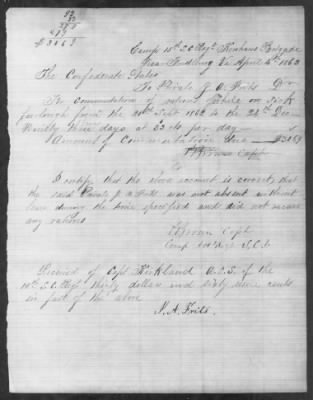 93
33
279
279
$30.69
Camp 15th S.C. Regt Kershaws Brigade
Near Fredburg Va April 4th 1863
The Confederate States
To Private J. A. Frits Dr
To commutation of rations while on sick
furlough from the 20th Sept 1862 to the 22d Dec
Ninety three days at 33 cts per day
Amount of Commutation Due $30.69
Capt
I certify that the above account is correct, that
the said Private J. A. Frits was not absent without
leave during the time specified and did not receive
any rations
Capt
Comp 15th Regt S.C.V.
Received of Capt Kirkland A.C.S. of the
15th S.C. Regt thirty dollars and sixty nine cents
in full of the above
J. A. Frits.